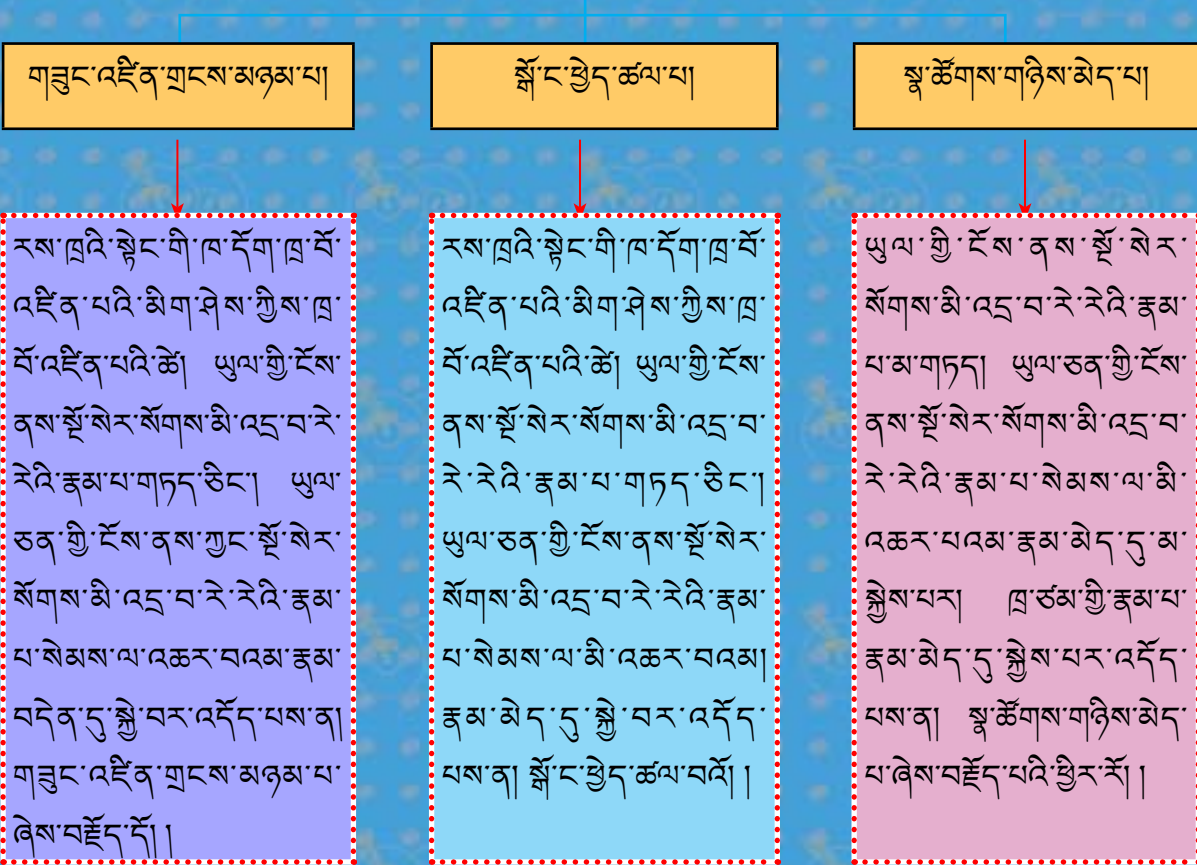 གཟུང་འཛིན་གྲངས་མཉམ་པ།
སྒོ་ང་ཕྱེད་ཚལ་པ།
སྣ་ཚོགས་གཉིས་མེད་པ།
རས་ཁྲའི་སྟེང་གི་ཁ་དོག་ཁྲ་བོ་
འཛིན་པའི་མིག་ཤེས་ཀྱིས་ཁྲ་
བོ་འཛིན་པའི་ཚེ། ཡུལ་གྱི་ངོས་
ནས་སྔོ་སེར་སོགས་མི་འདྲ་བ་རེ་
རེའི་རྣམ་པ་གཏད་ཅིང་། ཡུལ་
ཅན་གྱི་ངོས་ནས་ཀྱང་སྔོ་སེར་
སོགས་མི་འདྲ་བ་རེ་རེའི་རྣམ་
པ་སེམས་ལ་འཆར་བའམ་རྣམ་
བདེན་དུ་སྐྱེ་བར་འདོད་པས་ན།
གཟུང་འཛིན་གྲངས་མཉམ་པ་
ཞེས་བརྗོད་དོ། །
རས་ཁྲའི་སྟེང་གི་ཁ་དོག་ཁྲ་བོ་
འཛིན་པའི་མིག་ཤེས་ཀྱིས་ཁྲ་
བོ་འཛིན་པའི་ཚེ། ཡུལ་གྱི་ངོས་
ནས་སྔོ་སེར་སོགས་མི་འདྲ་བ་
རེ་རེའི་རྣམ་པ་གཏད་ཅིང་།
ཡུལ་ཅན་གྱི་ངོས་ནས་སྔོ་སེར་
སོགས་མི་འདྲ་བ་རེ་རེའི་རྣམ་
པ་སེམས་ལ་མི་འཆར་བའམ།
རྣམ་མེད་དུ་སྐྱེ་བར་འདོད་
པས་ན། སྒོ་ང་ཕྱེད་ཚལ་བའོ། །
ཡུལ་གྱི་ངོས་ནས་སྔོ་སེར་
སོགས་མི་འདྲ་བ་རེ་རེའི་རྣམ་
པ་མ་གཏད། ཡུལ་ཅན་གྱི་ངོས་
ནས་སྔོ་སེར་སོགས་མི་འདྲ་བ་
རེ་རེའི་རྣམ་པ་སེམས་ལ་མི་
འཆར་པའམ་རྣམ་མེད་དུ་མ་
སྐྱེས་པར། ཁྲ་ཙམ་གྱི་རྣམ་པ་
རྣམ་མེད་དུ་སྐྱེས་པར་འདོད་
པས་ན། སྣ་ཚོགས་གཉིས་མེད་
པ་ཞེས་བརྗོད་པའི་ཕྱིར་རོ། །